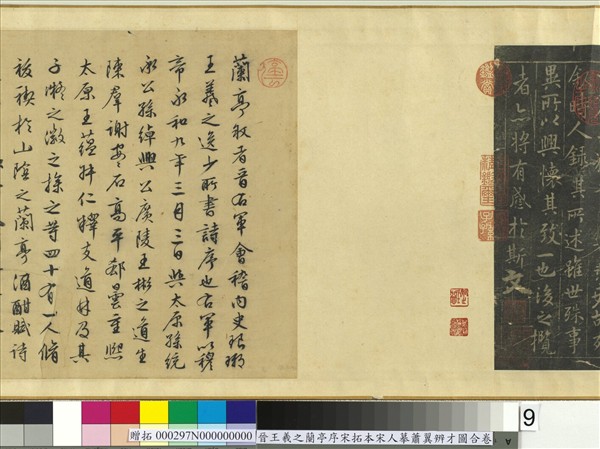 敘時人錄其所述雖世殊事
異所以興懷其致一也後之攬
者亦將有感於斯文
蘭亭敘者晉右軍會稽內史瑯瑘
王羲之逸少所書詩序也右軍以穆
帝永和九年三月三日與太原孫統
承公孫綽興公廣陵王彬之道生
陳羣謝安石高平郗曇重熙
太原王蘊叔仁釋支道林及其
子凝之徽之操之等四十有一人脩
祓禊於山陰之蘭亭酒酣賦詩
9
贈拓 000297N000000000 晉王羲之蘭亭序宋拓本宋人摹蕭翼辨才圖合卷
A